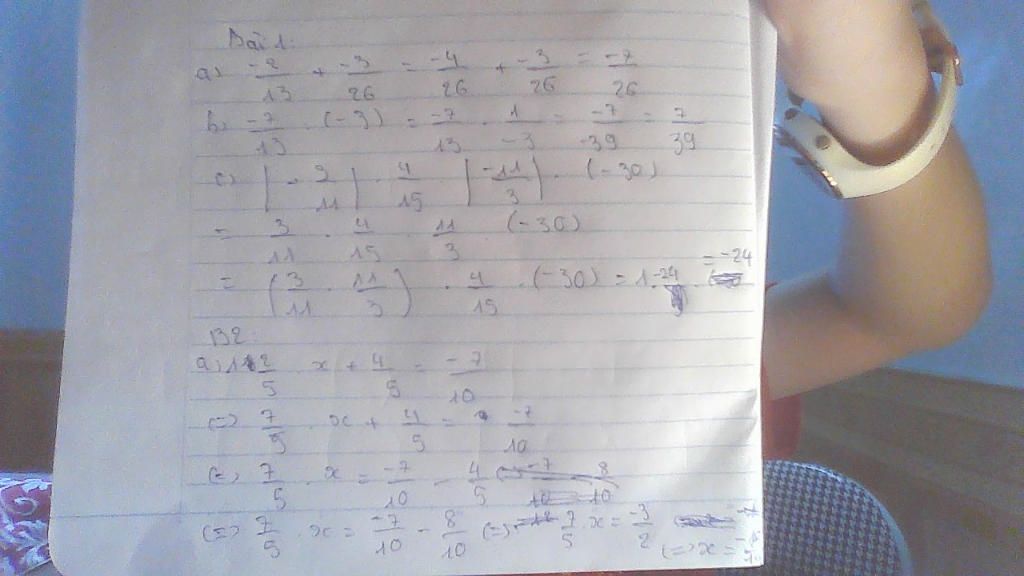 Bài 1:
a) -2/13 + -3/26 = -4/26 + -3/26 = -7/26
b) -7/13 : (-3) = -7/13 . 1/-3 = -7/-39 = 7/39
c) |-3/11| . 4/15 . |-11/3| . (-30)
= 3/11 . 4/15 . 11/3 (-30)
= (3/11 . 11/3) . 4/15 . (-30) = 1. -24 = -24
B2:
a) 1 2/5 . x + 4/5 = -7/10
(=) 7/5 . x + 4/5 = -7/10
(=) 7/5 . x = -7/10 - 4/5
(=) 7/5 . x = -7/10 - 8/10 (=) 7/5 . x = -3/2
(=) x =